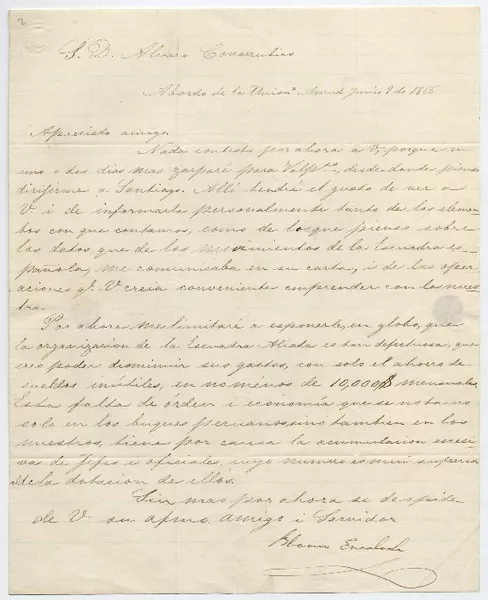 2
S. D. Alvaro Covarrubias
Abordo de la "Union" Junio 9 de 1866
Apreciado amigo.
Nada contesto por ahora a V, porque en
uno o dos dias mas zarparé para Valpso, desde donde pienso
dirijirme a Santiago. Allí tendré el gusto de ver a
V. i de informarle personalmente tanto de los elemen-
tos con que contamos, como de lo que pienso sobre
los datos, que de los movimientos de la Escuadra es-
pañola, me comunicaba en su carta, i de las oper-
aciones qe V. creia conveniente emprender con la nues-
tra.
Por ahora me limitaré a esponerle, en globo, que
la organizacion de la Escuadra Aliada es tan defectuosa, que
creo poder disminuir sus gastos, con solo el ahorro de
sueldos inútiles, en no menos de 10,000$ mensuales.
Esta falta de órden i economía que se nota no
solo en los buques peruanos sino tambien en los
nuestros, tiene por causa la acumulacion escesi-
va de jefes i oficiales, cuyo número es mui superior
al de la dotacion de ellos.
Sin mas por ahora se despide
de V. su afmo. amigo i Servidor
Blanco Encalada